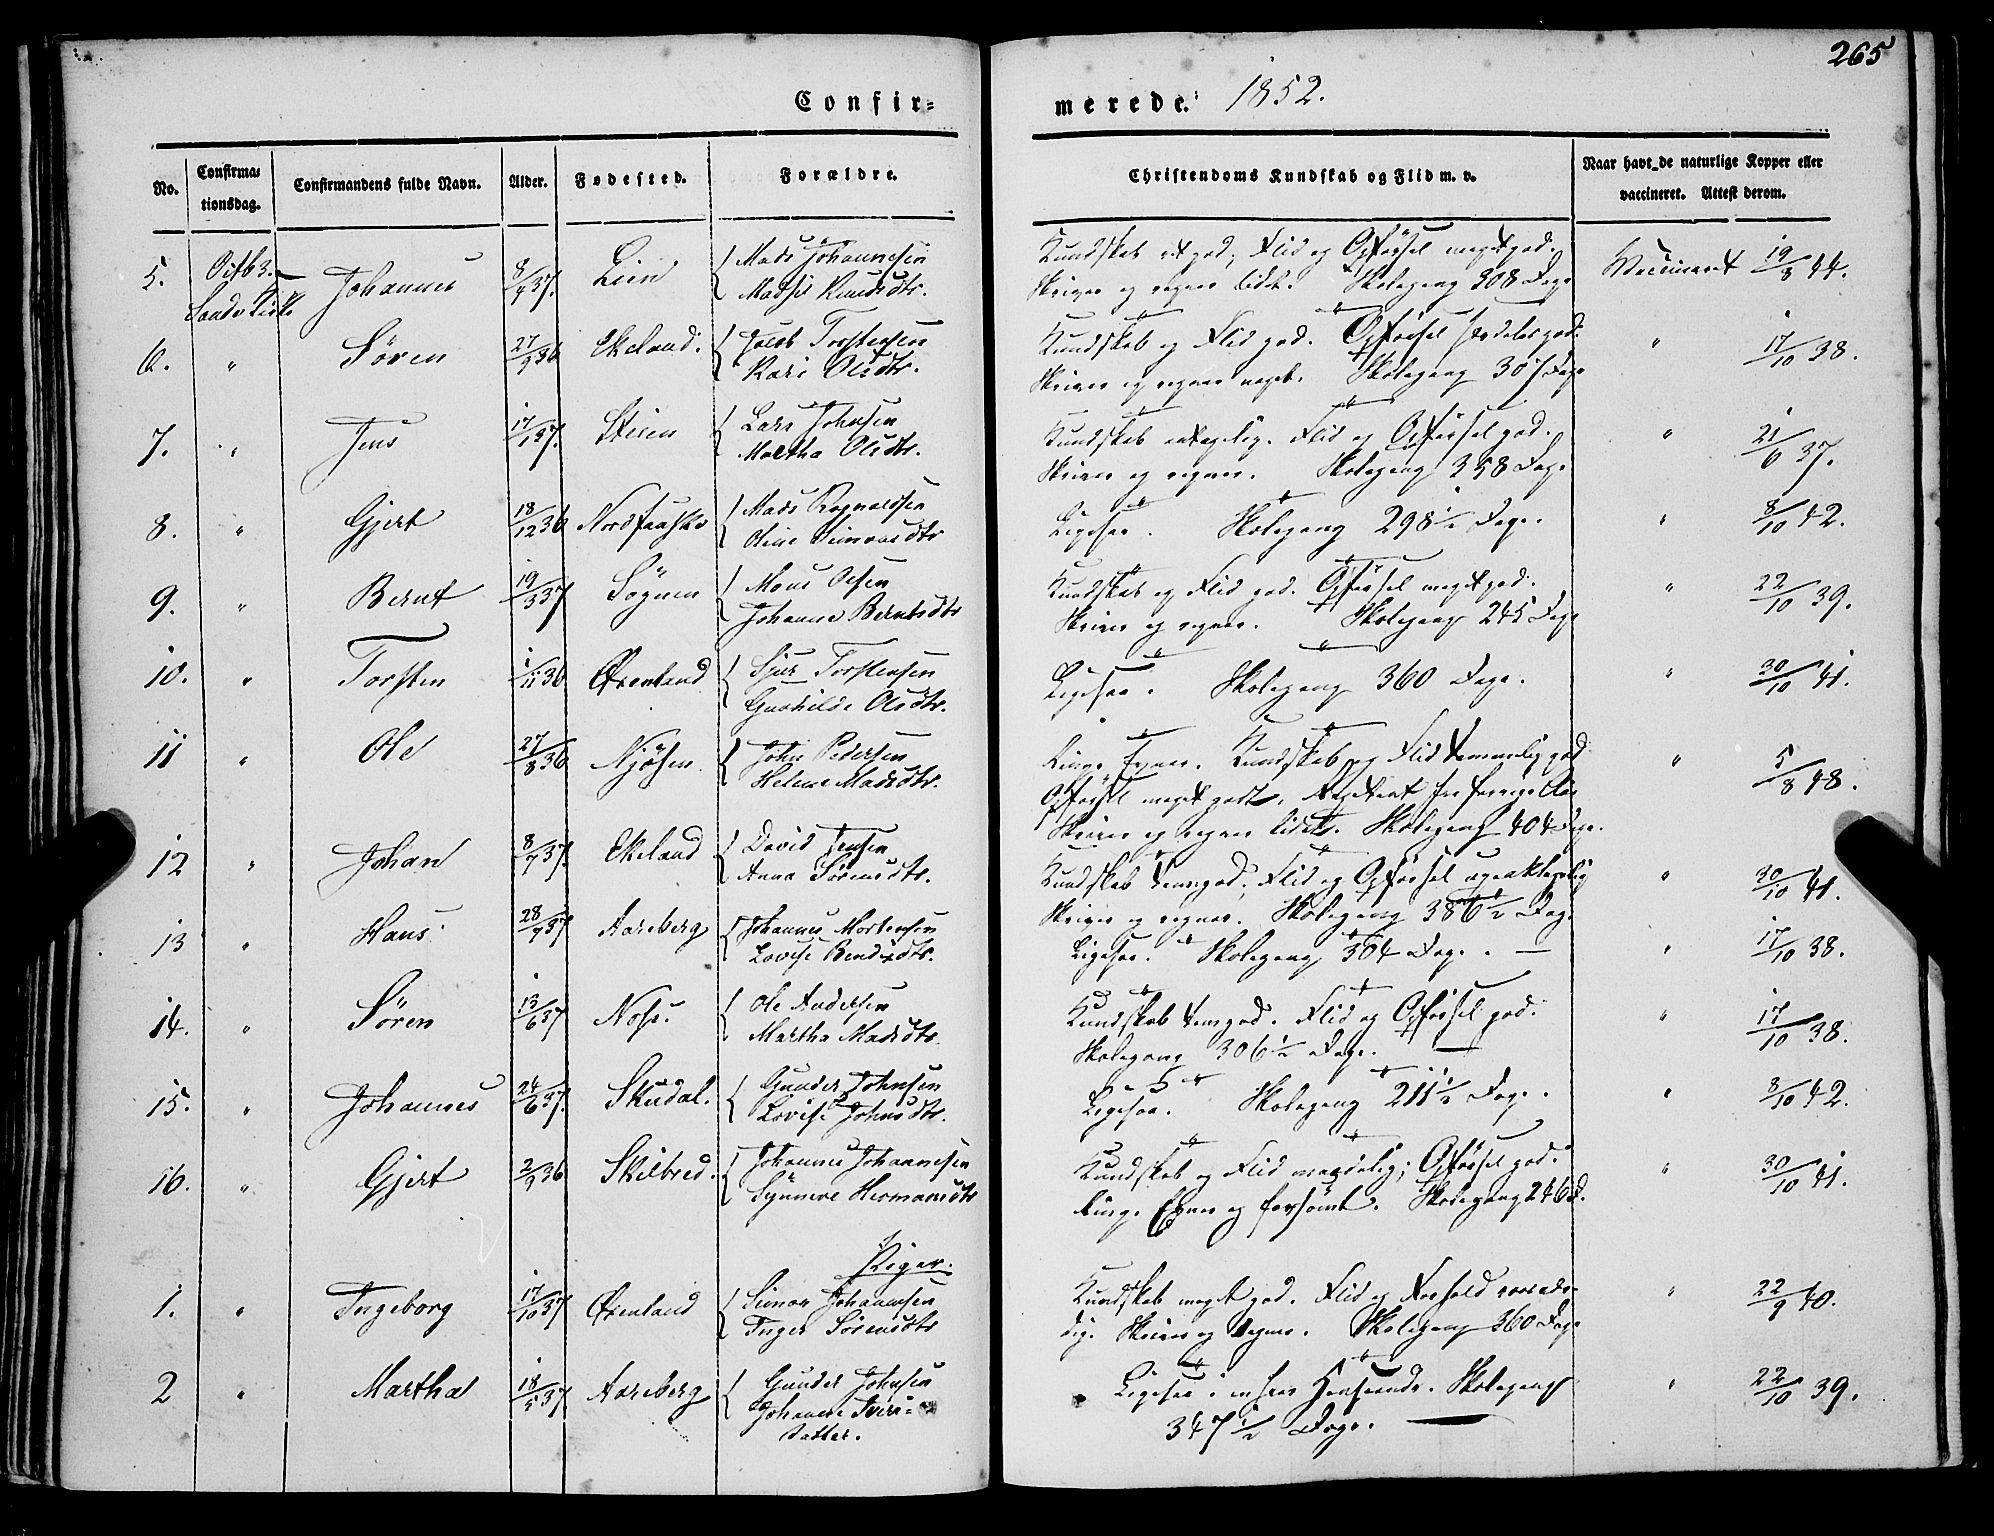 265
Confir=
merede. 1852.
No.
Confirma=
tionsdag.
Confirmandens fulde Navn.
Alder.
Fødested.
Forældre.
Christendoms Kundskab og Flid m. v.
Naar havt de naturlige Kopper eller
vaccineret. Attest derom.
5. Octb 3. Johannes 8/4 37. Lien Mads Johannesen
Sands Kirke Knudsdtr.
Kundskab god, Flid og Opførsel meget god.
Skriver og regner lidet. Skolegang 308 Dage
Vaccineret 19/8 44.
6. " Søren 27/9 36 Ekeland. Jacob Torstensen
Kari Olsdtr.
Kundskab og Flid god. Opførsel god.
Skriver og regner noget. Skolegang 307 Dage
" 17/10 38.
7. " Jens 17/1 37. Steien Lars Johnsen
Martha Olsdtr.
Kundskab Flid og Opførsel god.
Skriver og regner. Skolegang 358 Dage
" 21/6 37.
8. " Gjert 18/12 36 Mads Rognaldsen
Oline
Ligesaa. Skolegang 298 1/2 Dage.
" 8/10 42.
9. " Bernt 19/3 37 Sögnen Mons Olsen
Johanne Berntsdtr
Kundskab og Flid god. Opførsel meget god.
Skriver og regner. Skolegang 245 Dage
" 22/10 39.
10. " Torsten 1/11 36 Øxenland Sjur Torstensen
Gunhilde Olsdtr.
Ligesaa. Skolegang 360 Dage.
" 30/10 41.
11 " Ole 27/8 36 Njøsen John Pedersen
Helene Madsdtr.
Ringe Evner. Kundskab og Flid temmelig god
Opførsel meget godt,
Skriver og regner lidet. Skolegang 404 Dage.
" 5/8 48.
12 " Johan 8/7 37. Ekeland David Jensen
Anna Sørensdtr.
Kundskab temgod, Flid og Opførsel
Skriver og regner. Skolegang 386 1/2 Dage
" 30/10 41.
13 " Hans 28/7 37 Aareberg Johannes Mortensen
Lovise Bendixdtr.
Ligesaa. Skolegang 304 Dage. —
" 17/10 38.
14. " Søren 13/6 37 Nose. Ole Andersen
Martha Madsdtr.
Kundskab temgod. Flid og Opførsel god.
Skolegang 306 1/2 Dage. —
" 17/10 38.
15. " Johannes 24/6 37. Skudal. Gunder Johnsen
Lovise Johnsdtr.
Ligesaa. Skolegang 211 1/2 Dage.
" 8/10 42.
16. " Gjert 2/9 36 Skilbred. Johannes Johannesen
Synneve Hermansdtr
Kundskab og Flid maadelig; Opførsel god.
Ringe Evner og forsømt. Skolegang 246 D.
" 30/10 41.
Piger.
1. " Ingeborg 17/10 37 Øxenland Simon Johannesen
Inger Sørensdtr
Kundskab meget god. Flid og Forhold
dig. Skriver og regner. Skolegang 360 Dage
" 22/9 40.
2 " Martha 18/5 37 Aareberg Gunder Johnsen
Johanne Iver=
datter.
Ligesaa i enhver Henseende. Skolegang
347 1/2 Dage. —
" 22/10 39.